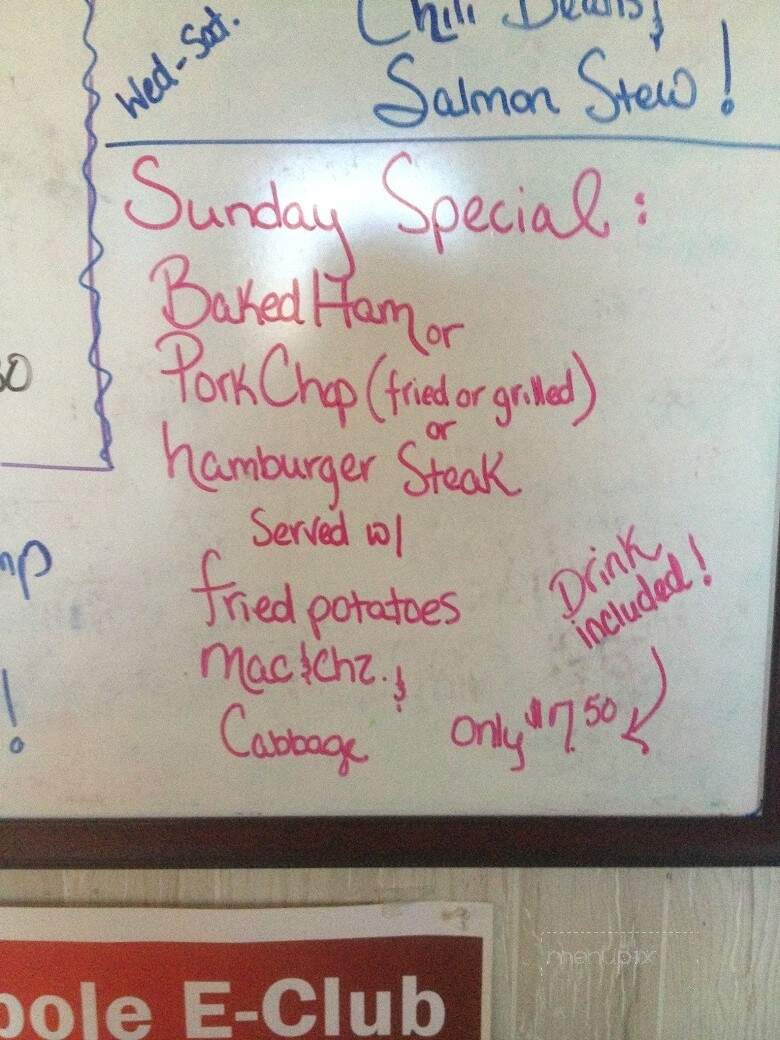 Wed-Sat.
Chili Beans &
Salmon Stew!
Sunday Special:
Baked Ham or
Pork Chop (fried or grilled)
or
hamburger Steak
Served w/
fried potatoes
Mac & Chz. &
Cabbage
Drink
included!
Only $7.50
!
E-Club
menupix